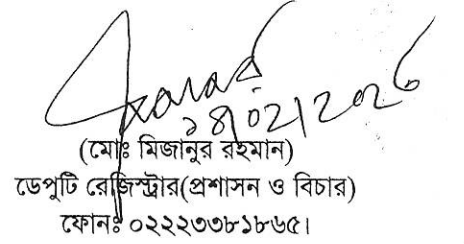 ১৪/০২/২০২৬
(মোঃ মিজানুর রহমান)
ডেপুটি রেজিস্ট্রার(প্রশাসন ও বিচার)
ফোনঃ ০২২২৩৩৮১৮৬৫।